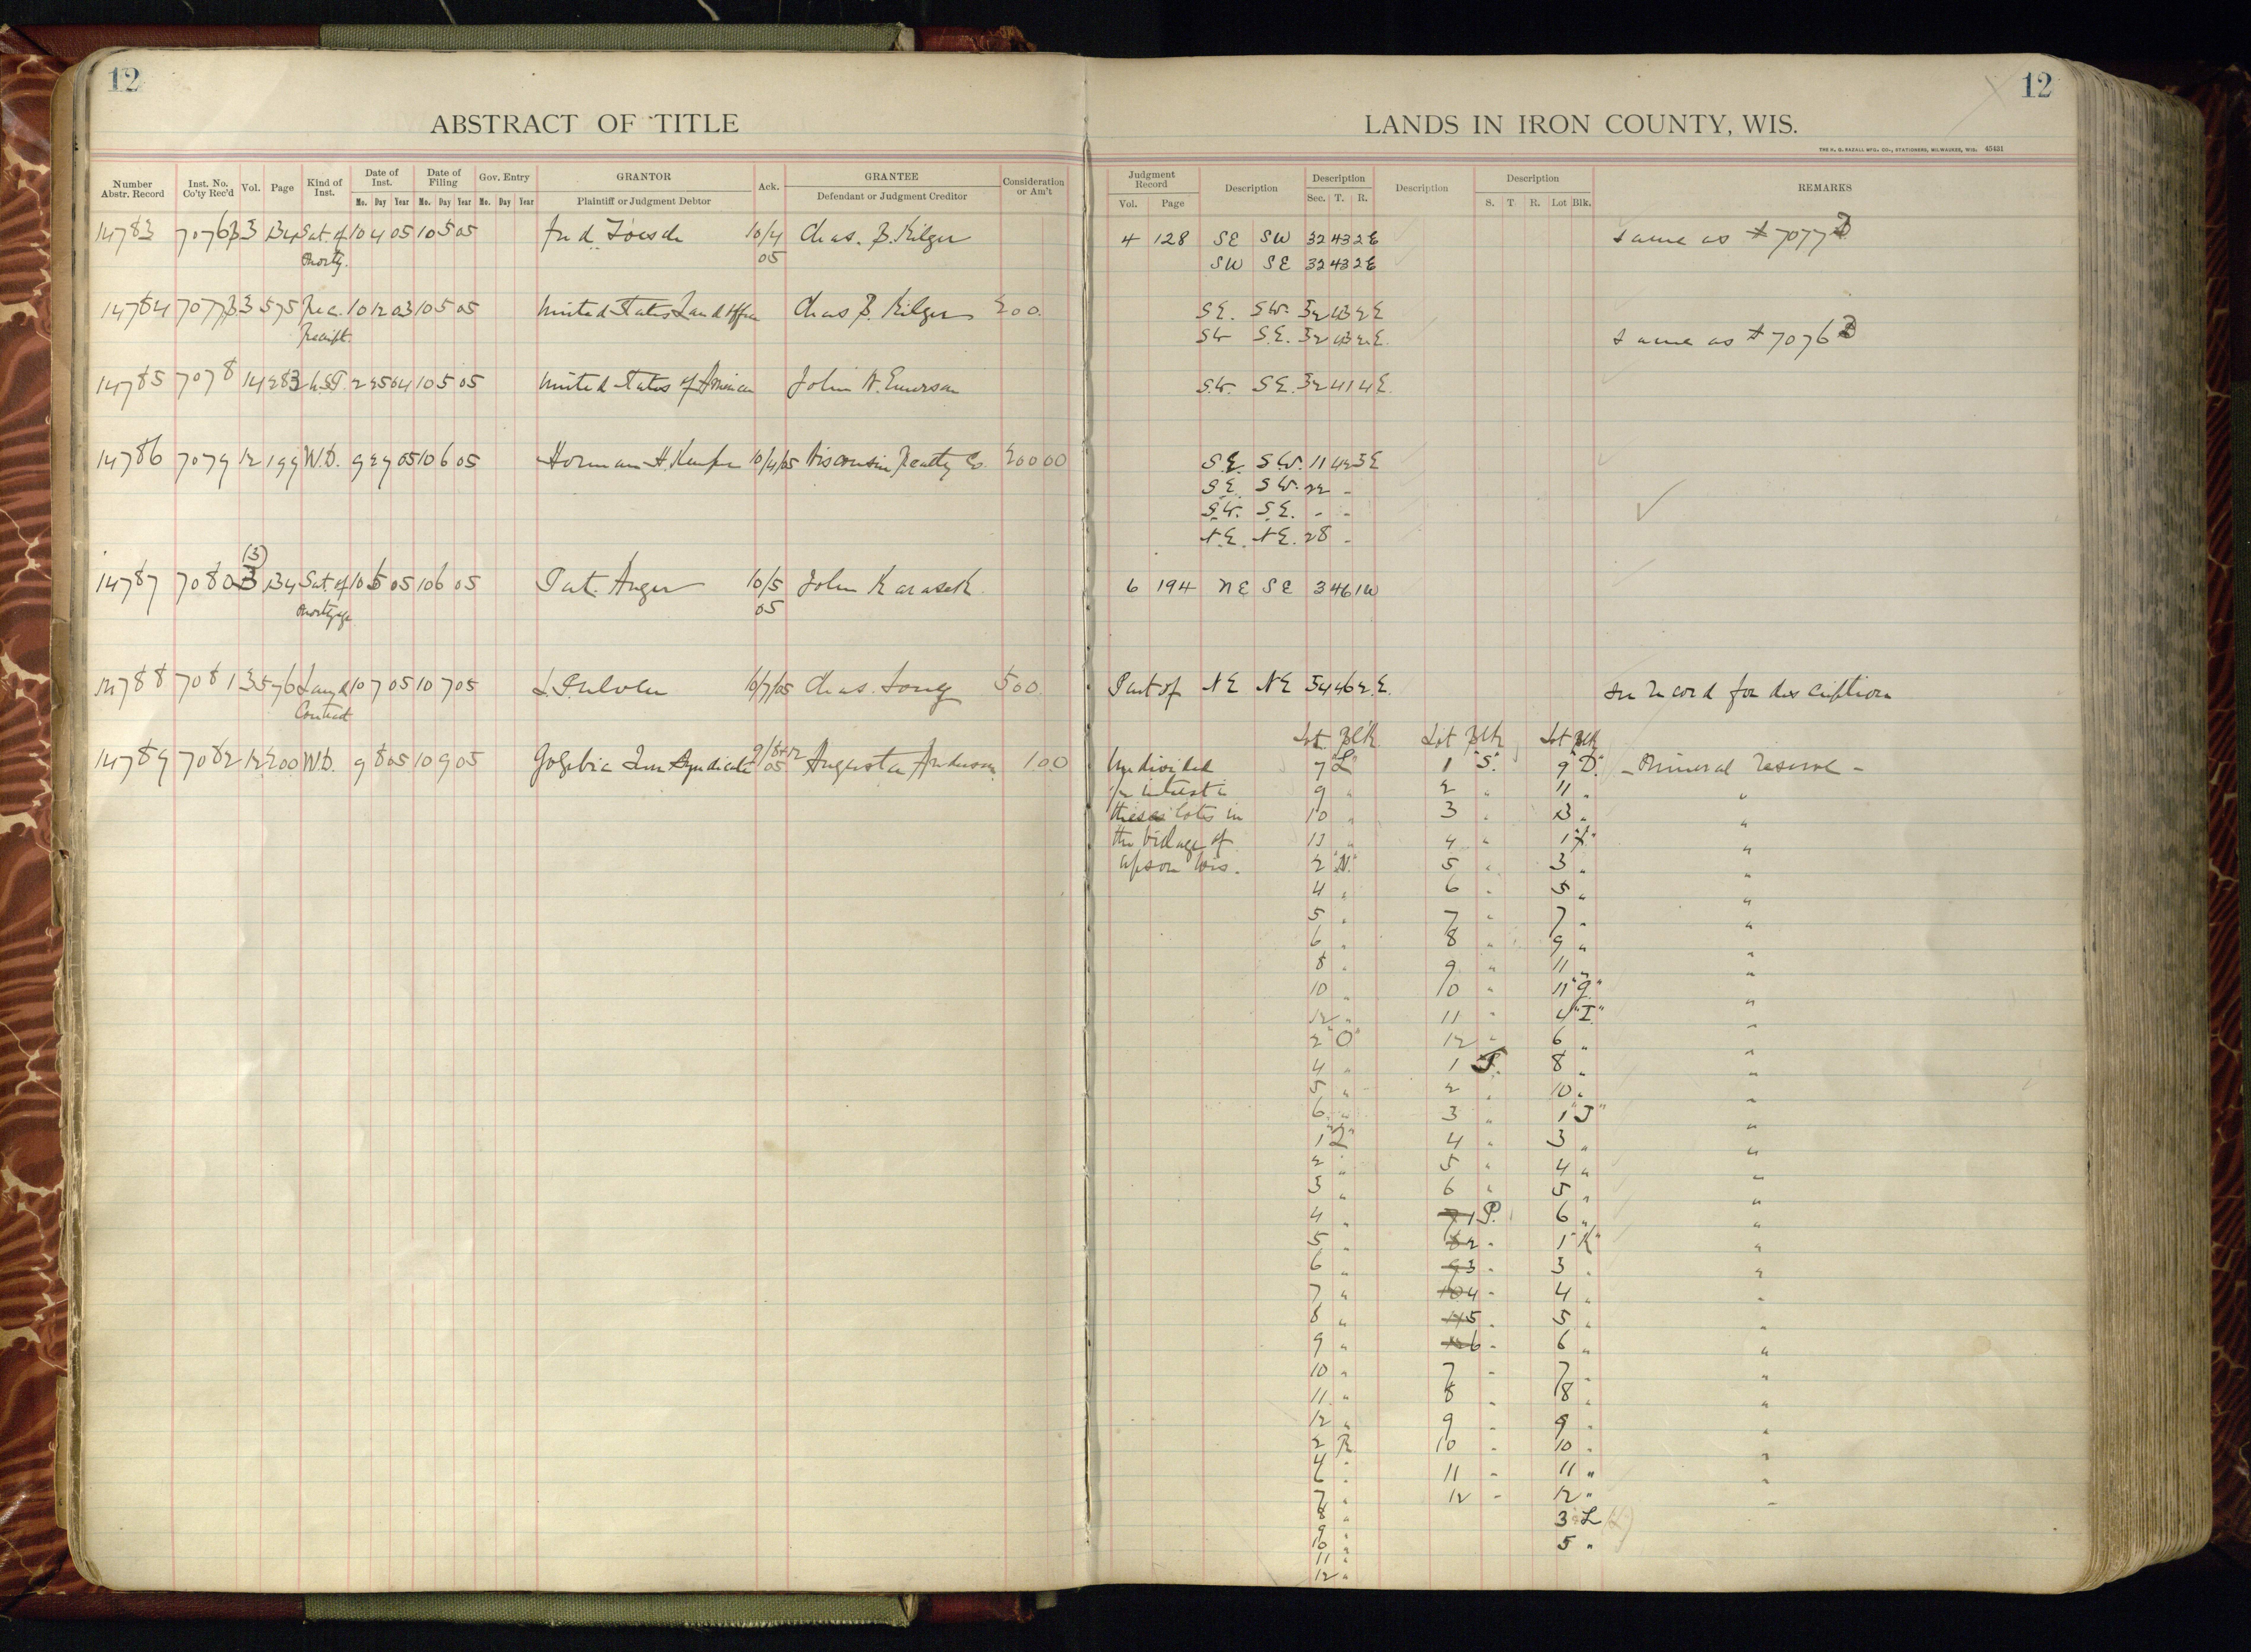 12
ABSTRACT OF TITLE
Number Abstr. Record Inst. No. Co'ty Rec'd Vol. Page Kind of Inst. Date of Inst. Date of Filing Gov. Entry GRANTOR Ack. GRANTEE Consideration or Am't
Mo. Day Year Mo. Day Year Mo. Day Year Plaintiff or Judgment Debtor Defendant or Judgment Creditor
14783 7076 3 134 Sat. of 10 4 05 10 5 05 10/4 Chas. B. Kilger
Mortg. 05
14784 7077 3 575 Rec. 10 12 03 10 5 05 United States Land Office Chas B. Kilger 200.
Receipt.
14785 7078 14 283 U.S.P. 2 25 04 10 5 05 United States of America John W. Emerson
14786 7079 12 199 W.D. 9 29 05 10 6 05 10/4/05 Wisconsin Realty Co. 2000 00
(3)
14787 7080 3 134 Sat. of 10 5 05 10 6 05 Pat. Auger 10/5 John Karasek
Mortgage 05
14788 7081 3 576 Land 10 7 05 10 7 05 10/7/05 Chas. Long 500.
Contract
14789 7082 12 200 W.D. 9 8 05 10 9 05 Gogebic Iron Syndicate 9/8+12 05 Augusta Anderson 1.00
12
LANDS IN IRON COUNTY, WIS.
THE H. G. RAZALL MFG. CO., STATIONERS, MILWAUKEE, WIS. 45431
Judgment Record Description Description Description Description REMARKS
Vol. Page Sec. T. R. S. T. R. Lot Blk.
4 128 SE SW 32 43 2E Same as # 7077
SW SE 32 43 2E
S.E. S.W. 32 43 2E
SW S.E. 32 43 2E. Same as # 7076
S.W. S.E. 32 41 4E.
S.E. S.W. 11 42 3E
S.E. S.W. 22 -
S.W. S.E. - -
N.E. N.E. 28 -
6 194 NE SE 3 46 1W
Part of NE NE 34 46 2.E. See record for description
Lot Blk Lot Blk Lot Blk
Undivided 7 "L" 1 "S." 9 "D." - Mineral reserve -
1/2 interest in 9 " 2 " 11 " "
these lots in 10 " 3 " 13 " "
the Village of 13 " 4 " 1 "
Upson Wis. 2 "N." 5 " 3 " "
4 " 6 " 5 " "
5 " 7 " 7 " "
6 " 8 " 9 " "
8 " 9 " 11 " "
10 " 10 " 11 "G" "
12 " 11 " 4 "I" "
2 "O" 12 " 6 " "
4 " 1 T. 8 " "
5 " 2 " 10 " "
6 " 3 " 1 "J" "
1 "Q" 4 " 3 " "
2 " 5 " 4 " "
3 " 6 " 5 " "
4 " 7 1 P. 6 " "
5 " 8 2 " 1 "K" "
6 " 9 3 " 3 " "
7 " 10 4 " 4 " "
8 " 11 5 " 5 " "
9 " 12 6 " 6 " "
10 " 7 " 7 " "
11 " 8 " 8 " "
12 " 9 " 9 " "
2 R 10 " 10 " "
4 "
6 " 11 " 11 " "
7 " 12 " 12 " "
8 " 3 L
9 "
10 " 5 "
11 "
12 "